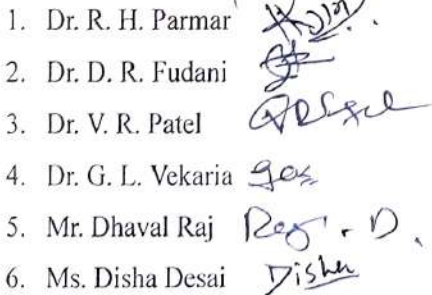 1. Dr. R. H. Parmar
2. Dr. D. R. Fudani
3. Dr. V. R. Patel
4. Dr. G. L. Vekaria
5. Mr. Dhaval Raj
6. Ms. Disha Desai Disha